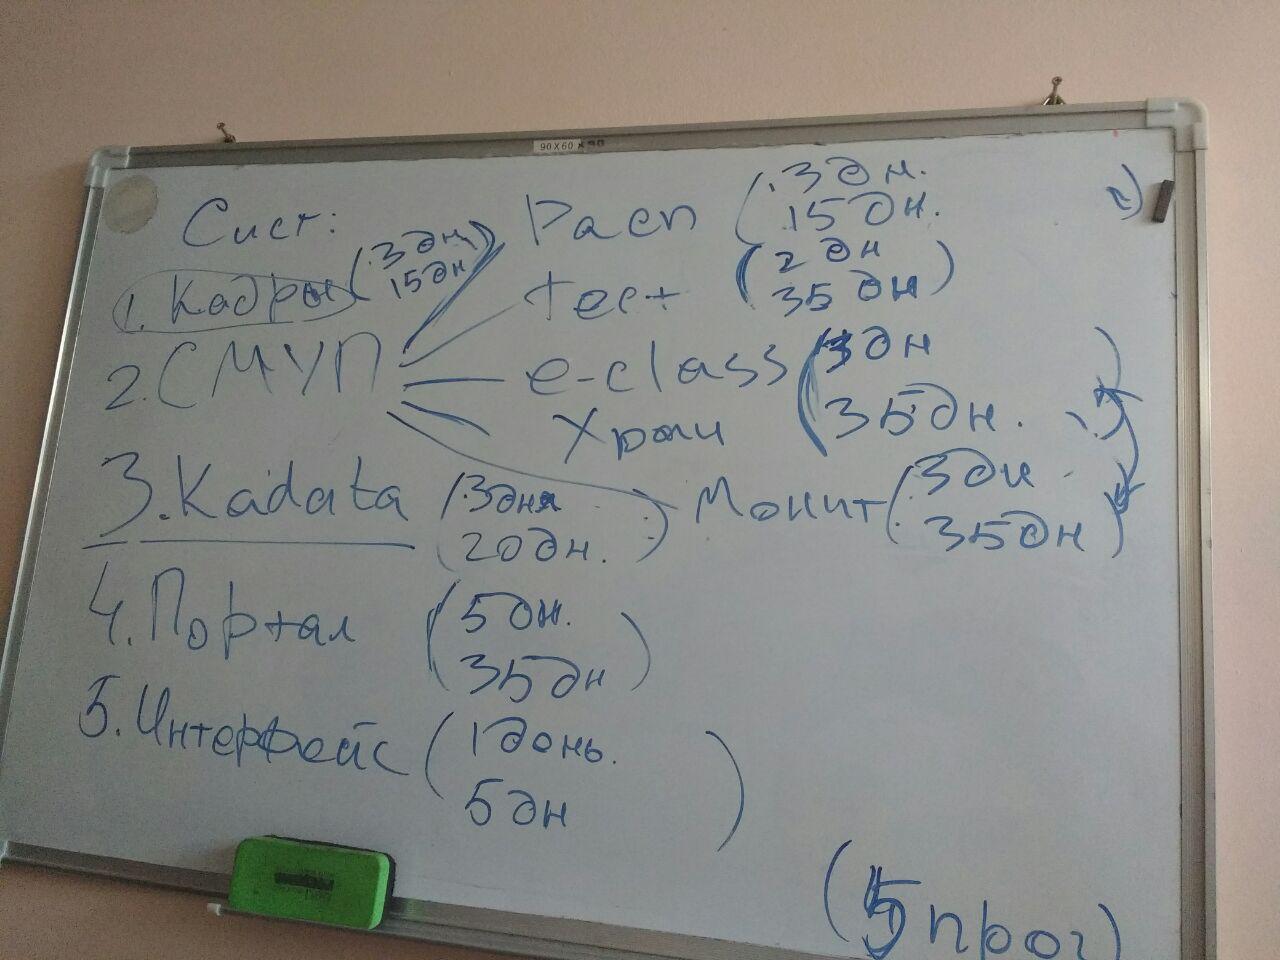 90X60
Сист: Расп (3 дн.
15 дн.
1. Кадры (3 дн
15 дн)
Тест (2 дн
35 дн)
2. СМУП
e-class (3 дн
Хран
35 дн.)
3. Kadata (3 дня
20 дн.)
Монит (3 дн
35 дн)
4. Портал (5 дн.
35 дн)
5. Интерфейс (1 день.
5 дн)
(5 прог)